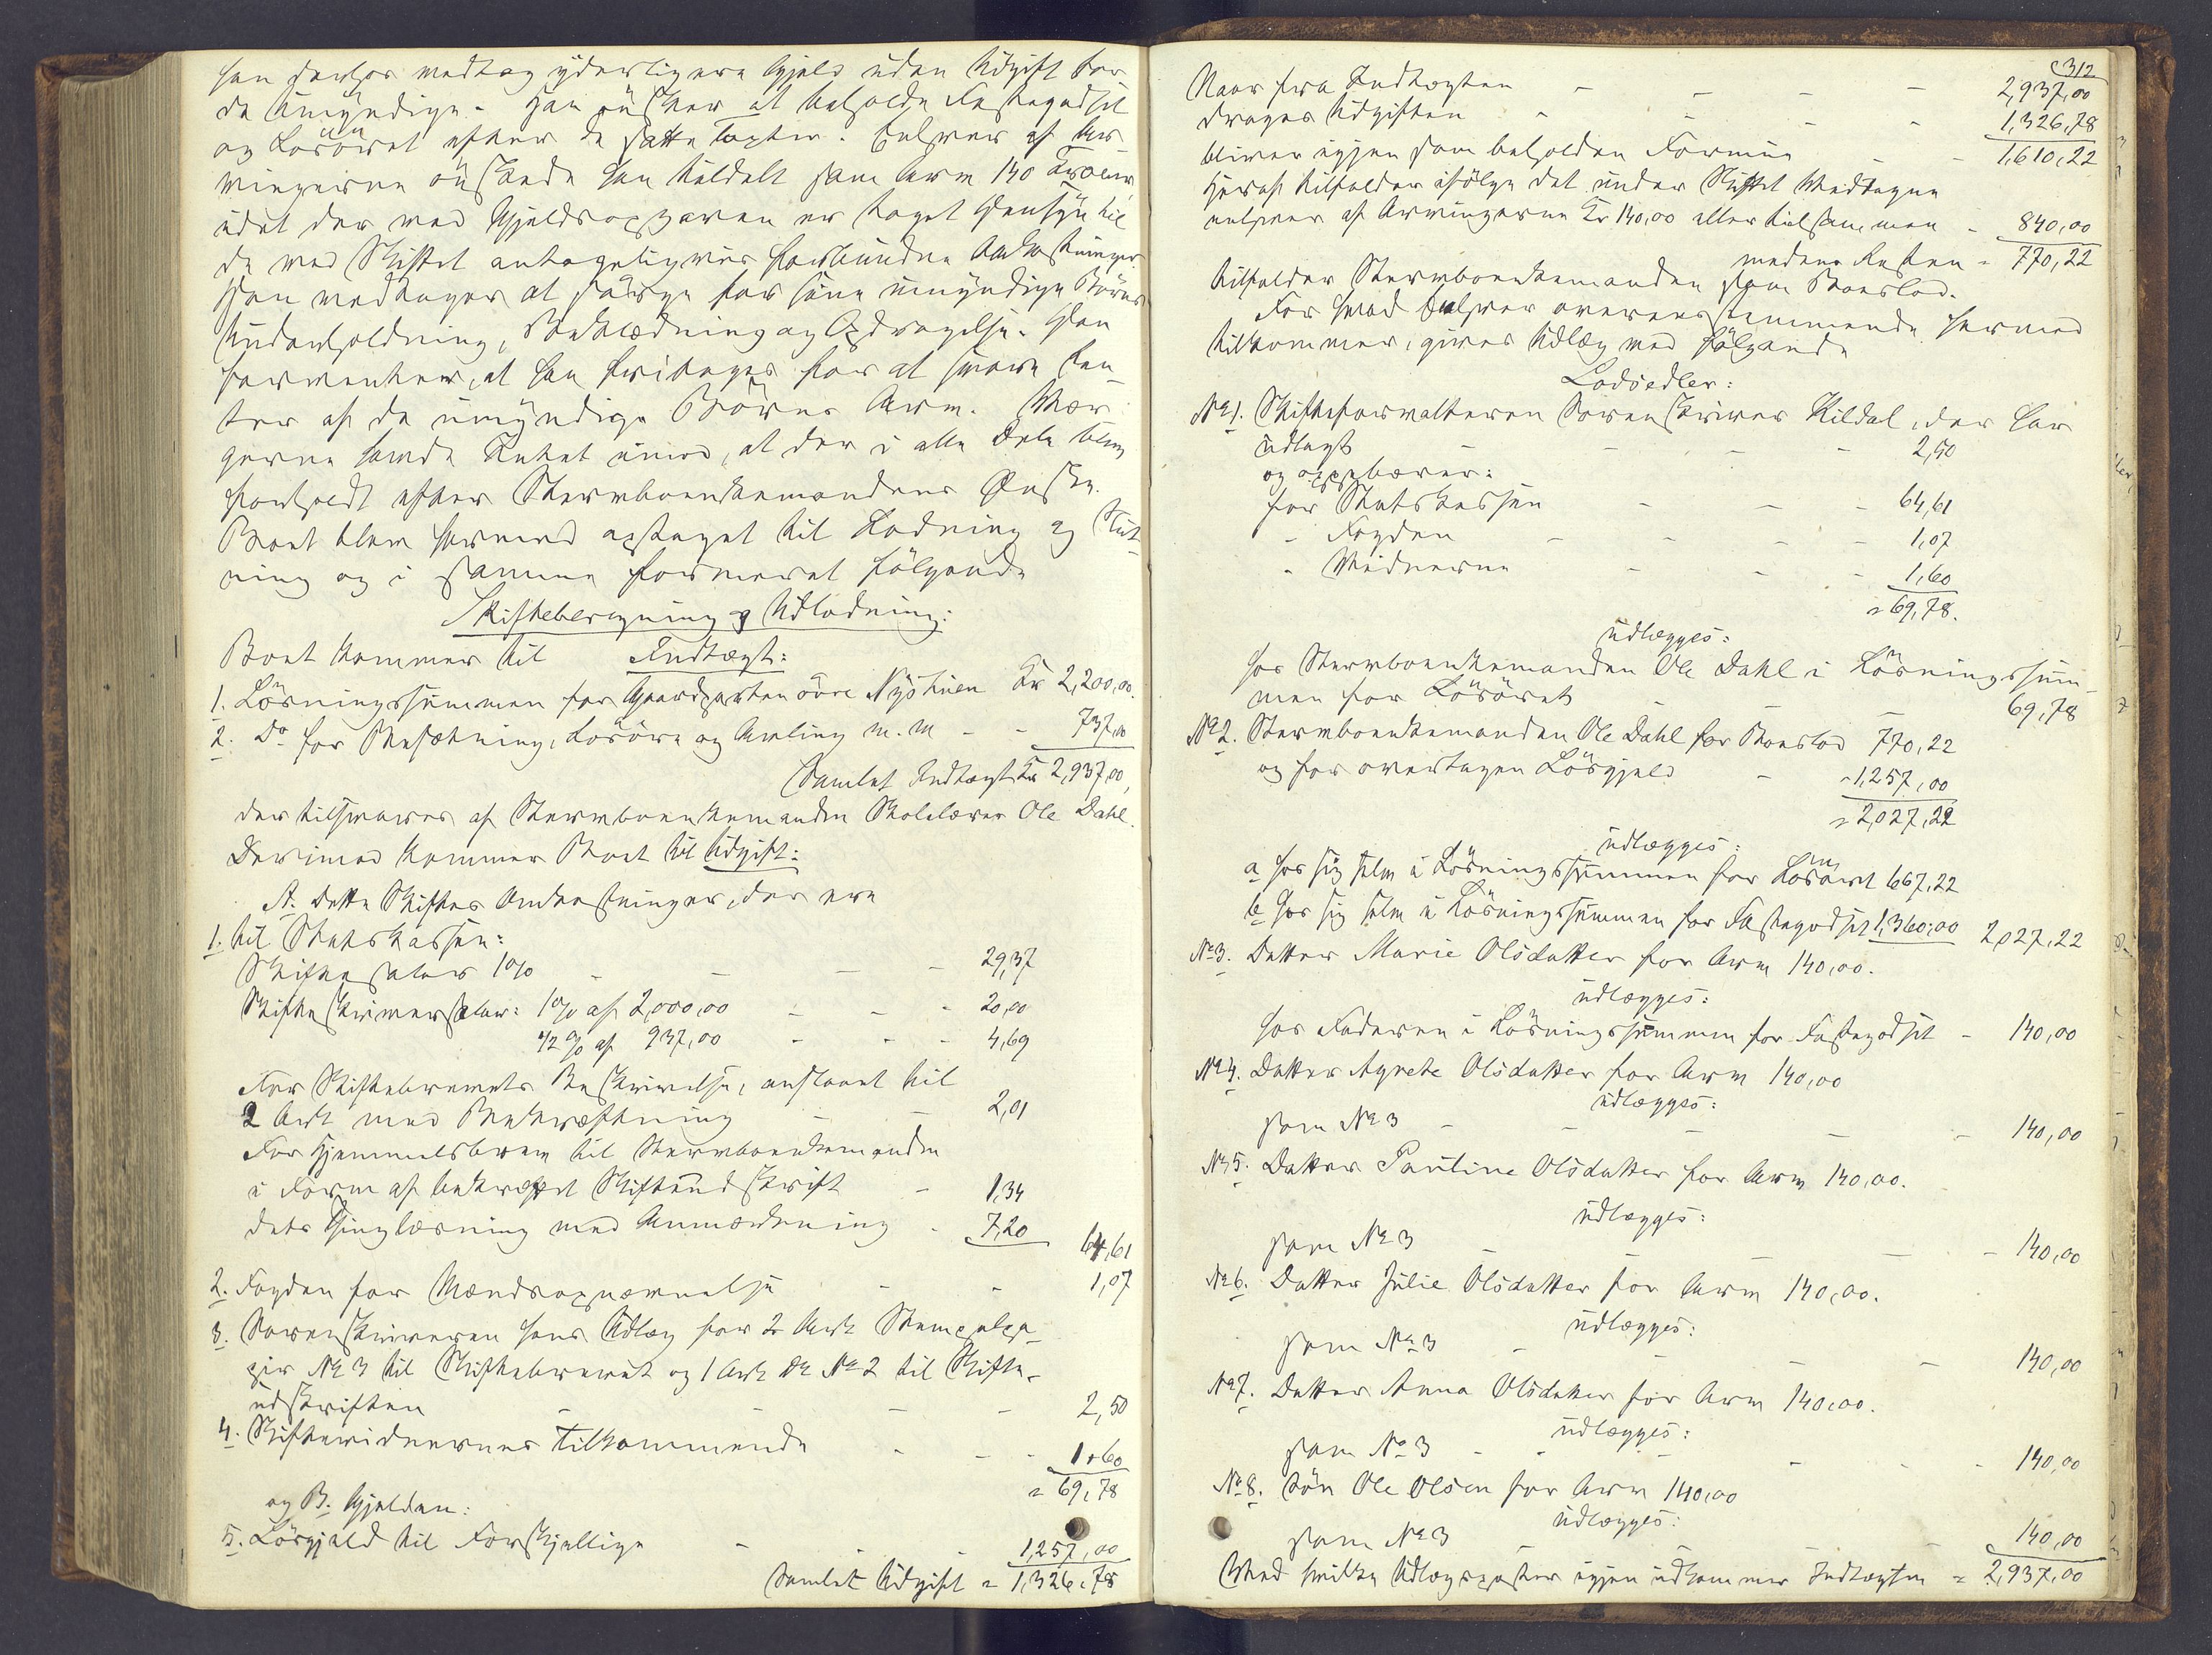 han derhos vedtog yderligere Gjæld uden Udgift for
de Umyndige. Han ønsker at beholde Fastegodset
og Løsøret efter de satte Taxter. Enhver af Ar-
vingerne ønskede han tildelt som Arv 140 Kroner
idet der ved Gjældsopgaven er taget Hensyn til
de med Skiftet antageligvis forbundne Omkostninger.
Han vedtager at sørge for sine umyndige Børns
Underholdning, Beklædning og Opdragelse. Han
forventer, at han fritages for at svare Ren-
ter af de umyndige Børns Arv. Vær-
gerne havde Intet imod, at der i alle Dele blev
forholdt efter Stervboenkemandens Ønske.
Boet blev hermed optaget til Lodning og Slut-
ning og i samme formeret følgende
Skifteberegning og Udlodning:
Boet kommer til Indtægt:
1. Løsningssummen for Gaardparten øvre Nystuen Kr 2,200,00.
2. Do for Besætning, Løsøre og Avling m.m - - 737,00
Samlet Indtægt Kr 2,937,00,
der tilsvares af Stervboenkemanden Skolelærer Ole Dahl.
Derimod kommer Boet til Udgift:
A. dette Skiftes Omkostninger, der ere
1. til Statskassen:
Skiftesalær 1% - - - - 29,37
Skifteskriversalær: 1% af 2,000,00 - - - 20,00
1/2 % af 937,00 - - - 4,69
For Skiftebrevets Beskrivelse, anslaaet til
2 Ark med Bekræftning - - 2,01
For Hjemmelsbrev til Stervboenkemanden
i Form af bekræftet Skifteudskrift - 1,34
dets Thinglæsning med Anmærkning - 7,20 64,61
2. Fogden for Mændsopnævnelse - - 1,07
3. Sorenskriveren hans Udlæg for 2 Ark Stempelpa-
pir No 3 til Skiftebrevet og 1 Ark do No 2 til Skifte-
udskriften - - - - 2,50
4. Skiftevidnernes Tilkommende - - - 1,60
= 69,78
og B. Gjælden:
5. Løsgjæld til Forskjellige - - 1,257,00
Samlet Udgift = 1,326,78
312
Naar fra Indtægten - - - - 2,937,00
drages Udgiften - - - - 1,326,78
bliver igjen som beholden Formue - - 1,610,22
Heraf tilfalder ifølge det under Skiftet Vedtagne
enhver af Arvingerne Kr 140,00 eller tilsammen - 840,00
medens Resten = 770,22
tilfalder Stervboenkemanden som Boeslod.
For hvad Enhver overensstemmende hermed
tilkommer, gives Udlæg ved følgende
Lodsedler:
No 1. Skifteforvalteren Sorenskriver Kildal, der har
udlagt - - - 2,50
og oppebærer:
for Statskassen - - - 64,61
- Fogden - - - - - 1,07
- Vidnerne - - - 1,60
= 69,78.
udlægges:
hos Stervboenkemanden Ole Dahl i Løsningssum-
men for Løsøret - - - 69,78
No 2. Stervboenkemanden Ole Dahl for Boeslod 770,22
og for overtagen Løsgjæld - - 1,257,00
= 2,027,22
udlægges:
a hos sig selv i Løsningssummen for Løsøret 667,22
b hos sig selv i Løsningssummen for Fastegodset 1,360,00 2,027,22
No 3. Datter Marie Olsdatter for Arv 140,00.
udlægges:
hos Faderen i Løsningssummen for Fastegodset - 140,00
No 4. Datter Agnete Olsdatter for Arv 140,00
udlægges:
som No 3 - - - - - 140,00
No 5. Datter Pauline Olsdatter for Arv 140,00.
udlægges:
som No 3 - - - - - 140,00
No 6. Datter Julie Olsdatter for Arv 140,00.
udlægges:
som No 3 - - - - 140,00
No 7. Datter Anna Olsdatter for Arv 140,00.
udlægges:
som No 3 - - - - - 140,00
No 8. Søn Ole Olsen for Arv 140,00
udlægges:
som No 3 - - 140,00
Ved hvilke Udlægsposter igjen udkommer Indtægten = 2,937,00